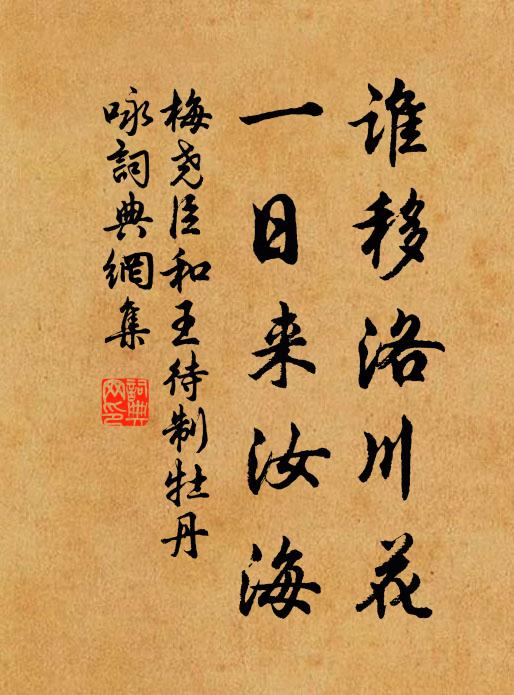 谁移洛川花
一日来汝海
梅尧臣和王待制牡丹
咏詞典網集
詞典
网印